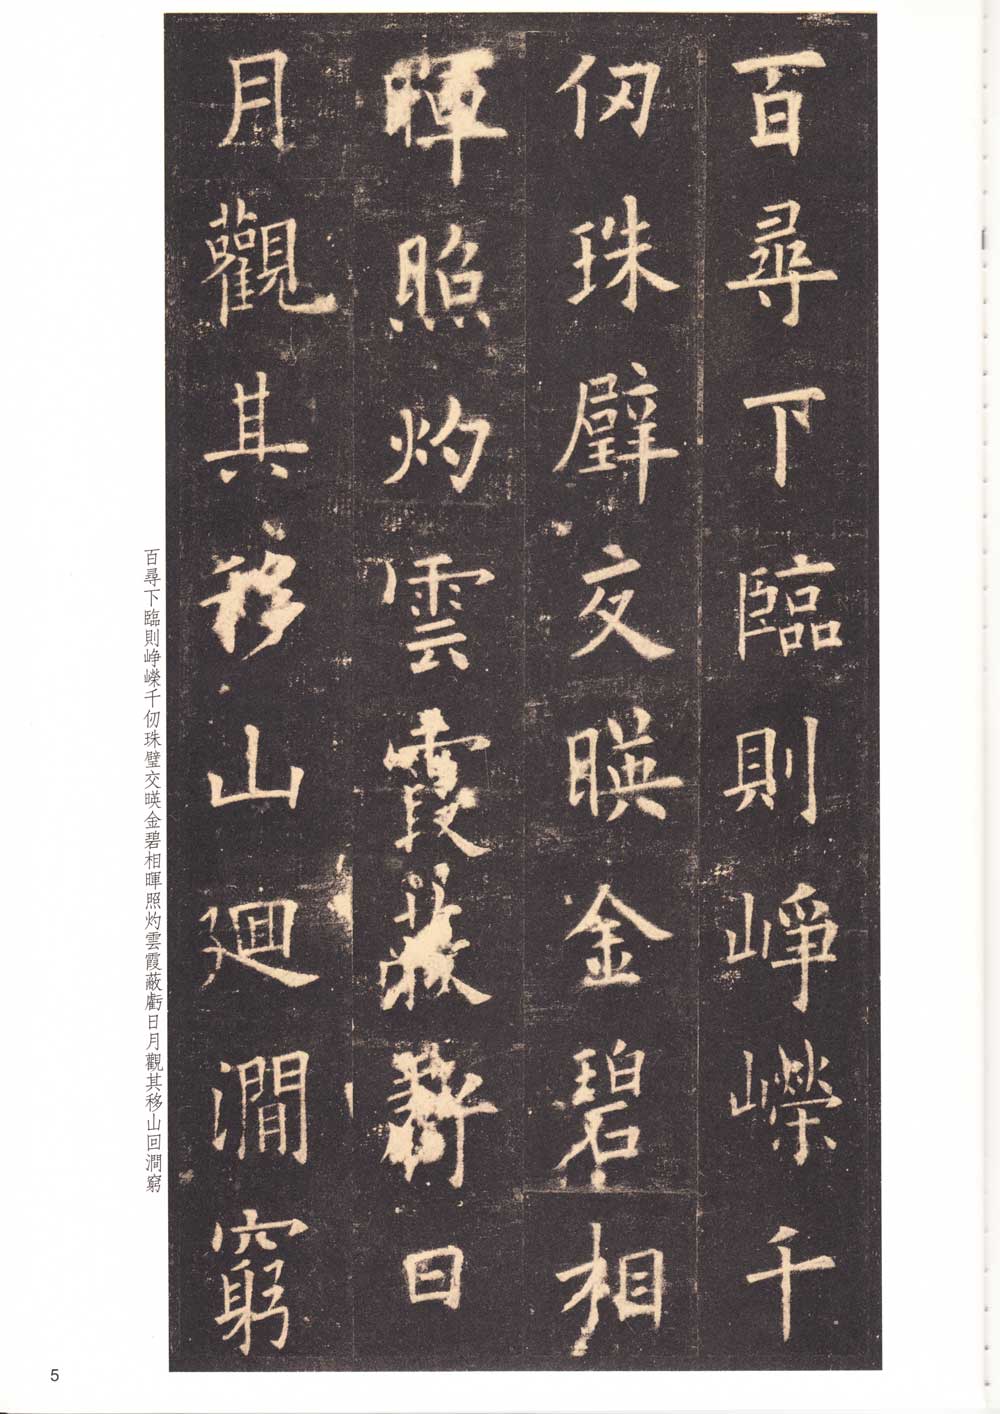 百尋下臨則崢嶸千
仞珠璧交暎金碧相
暉照灼雲霞蔽虧日
月觀其移山廻澗窮
百尋下臨則崢嶸千仞珠璧交暎金碧相暉照灼雲霞蔽虧日月觀其移山回澗窮
5